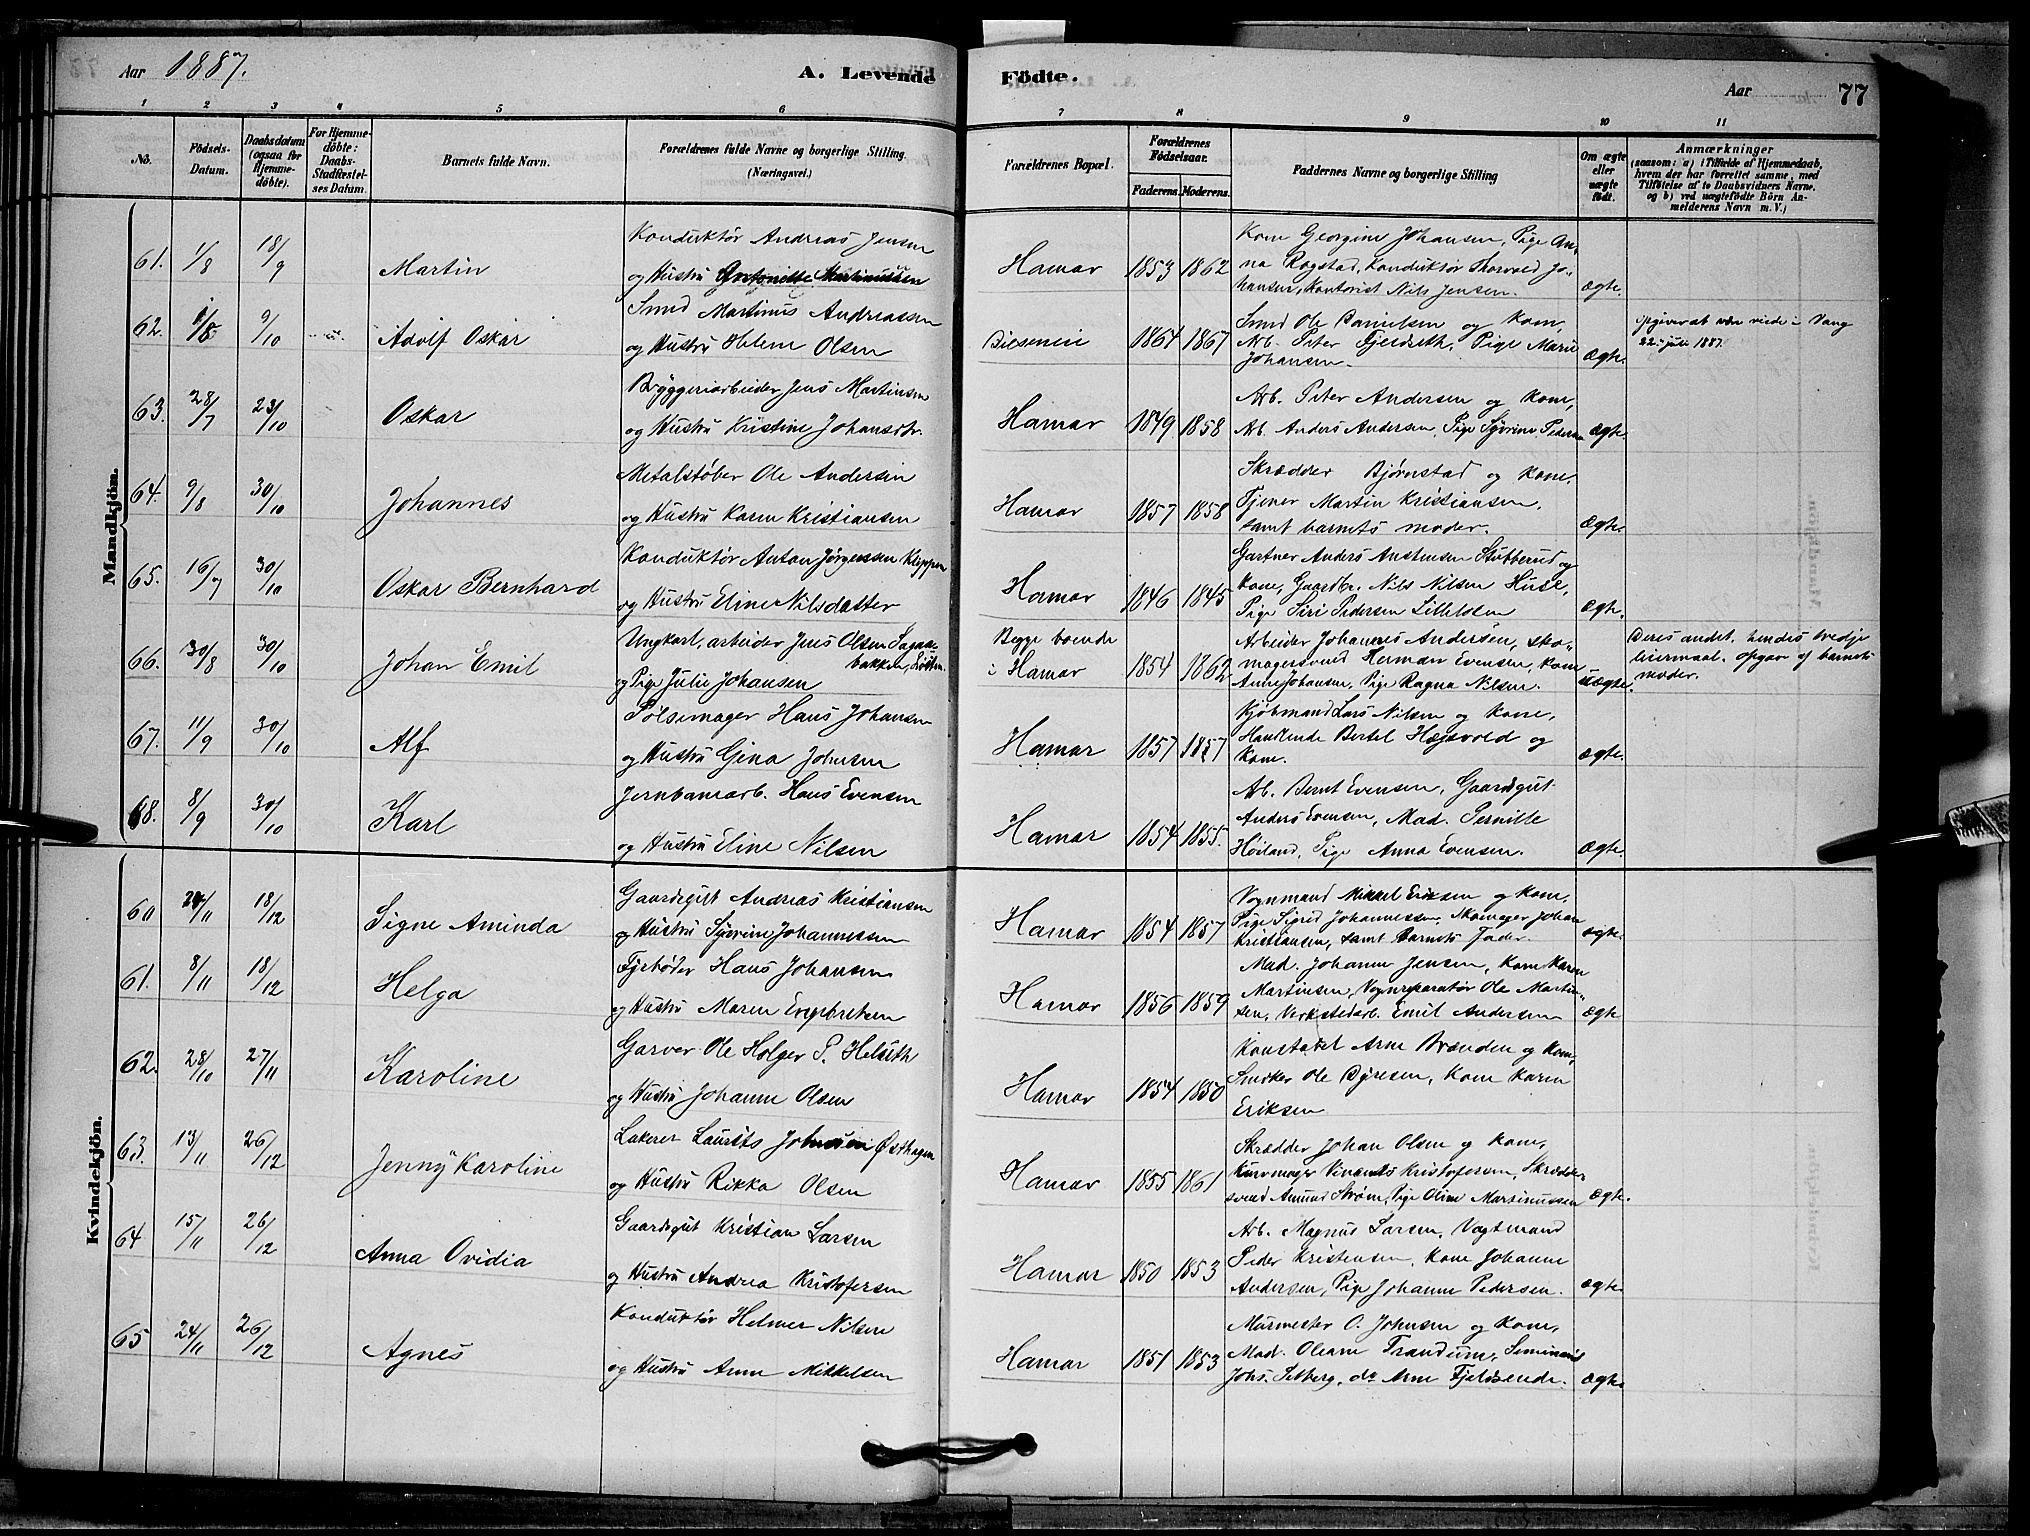 Aar 1887. A. Levende Födte. Aar 77
1 2 3 4 5 6 7 8 9 10 11
No.
Födsels-Datum.
Daabsdatum (ogsaa for Hjemme-döbte).
For Hjemme-döbte: Daabs-Stadfæstel-ses Datum.
Barnets fulde Navn.
Forældrenes fulde Navne og borgerlige Stilling. (Næringsvei.)
Forældrenes Bopæl.
Forældrenes Födselsaar.
Faderens. Moderens.
Faddernes Navne og borgerlige Stilling
Om ægte eller uægte födt.
Anmærkninger
(saasom: a) i Tilfælde af Hjemmedaab,
hvem der har forrettet samme, med
Tilföielse af to Daabsvidners Navne,
og b) ved uægtefödte Börn An-
melderens Navn m. V.)
Mandkjön.
61. 1/8 18/9 Martin
Konduktør Andreas Jensen
og Hustru Antonette Martinussen
Hamar 1853 1862
Kone Georgine Johansen, Pige An-
na Rogstad, Konduktør Thorvald Jo-
hansen, Kontorist Nils Jensen.
ægte.
62. 9/10 Adolf Oskar
Smed Martinus Andreassen
og Hustru Helene Olsen
1864 1867
Smed Ole Danielsen og Kone,
Arb. Peter Fjeldseth, Pige Marie
Johansen.
ægte.
opgives at være viede i Vang
22 juli 1887.
63. 28/7 23/10 Oskar
Bryggeriarbeider Jens Martinsen
og Hustru Kristine Johansdtr.
Hamar 1849 1858
Arb. Peter Andersen og Kone,
Arb. Anders Andersen, Pige Syverine Pedersen
ægte.
64. 9/8 30/10 Johannes
Metalstøber Ole Andersen
og Hustru Karen Kristiansen
Hamar 1857 1858
Skrædder Bjørnstad og Kone,
Tjener Martin Kristiansen,
samt barnets moder.
ægte.
65. 16/7 30/10 Oskar Bernhard
Konduktør Anton Jørgenssen Kleppen
og Hustru Eline Nilsdatter
Hamar 1846 1845
Gartner Anders Anstensen Stubberud og
Kone, Gaardbr. Nils Nilsen Huse,
Pige Siri Pedersen Lillelsen
ægte.
66. 30/8 30/10 Johan Emil
Ungkarl, arbeider Jens Olsen Sagaa-
bakken, Løiten
og Pige Julie Johansen
Begge boende
i Hamar 1854 1862
Arbeider Johannes Andersen, sko-
magersvend Herman Evensen, Kone
Anne Johansen, Pige Ragna Nilsen.
uægte.
Deres andet, hendes tredje
leiermaal. opgav af barnets
moder.
67. 11/9 30/10 Alf
Pølsemager Hans Johansen
og Hustru Gina Johnsen
Hamar 1857 1857
Kjøbmand Lars Nilsen og Kone,
Handlende Bertel Hegsvold og
Kone.
ægte.
68. 8/9 30/10 Karl
Jernbanearb. Hans Evensen
og Hustru Eline Nilsen
Hamar 1854 1855.
Arb. Bernt Evensen, Gaardsgut
Anders Evensen, Mad. Pernille
Høiland, Pige Anna Evensen.
ægte.
Kvindekjön.
60 24/11 18/12 Signe Aminda
Gaardsgut Andreas Kristiansen
og Hustru Syverine Johannessen
Hamar 1854 1857
Vognmand Mikkel Eriksen og Kone,
Pige Sigrid Johannessen, Skomager Johan
Kristiansen, samt Barnets Fader.
ægte.
61. 8/11 18/12 Helga
Fyrbøder Hans Johansen
og Hustru Maren Engebretsen
Hamar 1856 1859
Mad. Johanne Jensen, Kone Karen
Martinsen, Vognreparatør Ole Martin-
sen, Verkstedarb. Emil Andersen
ægte
62. 28/10 27/11 Karoline
Garver Ole Holger P. Helseth
og Hustru Johanne Olsen
Hamar 1854 1850
Konstabel Arne Brænden og Kone,
Snedker Ole Dyresen, Kone Karen
Eriksen
63. 13/11 26/12 Jenny Karoline
Lakerer Laurits Johnsen Østhagen
og Hustru Rikka Olsen
Hamar 1855 1861
Skrædder Johan Olsen og Kone,
Kurvmager Vincents Kristofersen, Skrædder-
svend Amund Strøm, Pige Oline Martinussen
ægte.
64 15/11 26/12 Anna Ovidia
Gaardsgut Kristian Larsen
og Hustru Andrea Kristofersen
Hamar 1850 1853
Arb. Magnus Larsen, Vogtmand
Peder Kristensen, Kone Johanne
Andersen, Pige Johanne Pedersen.
ægte.
65 24/11 26/12 Agnes
Konduktør Helmer Nilsen
og Hustru Anne Mikkelsen
Hamar 1851 1853
Murmester O. Johnsen og Kone,
Mad. Oleane Trandum, Seminarist
Johs. Setberg, do Arne Fjeldsende.
ægte.